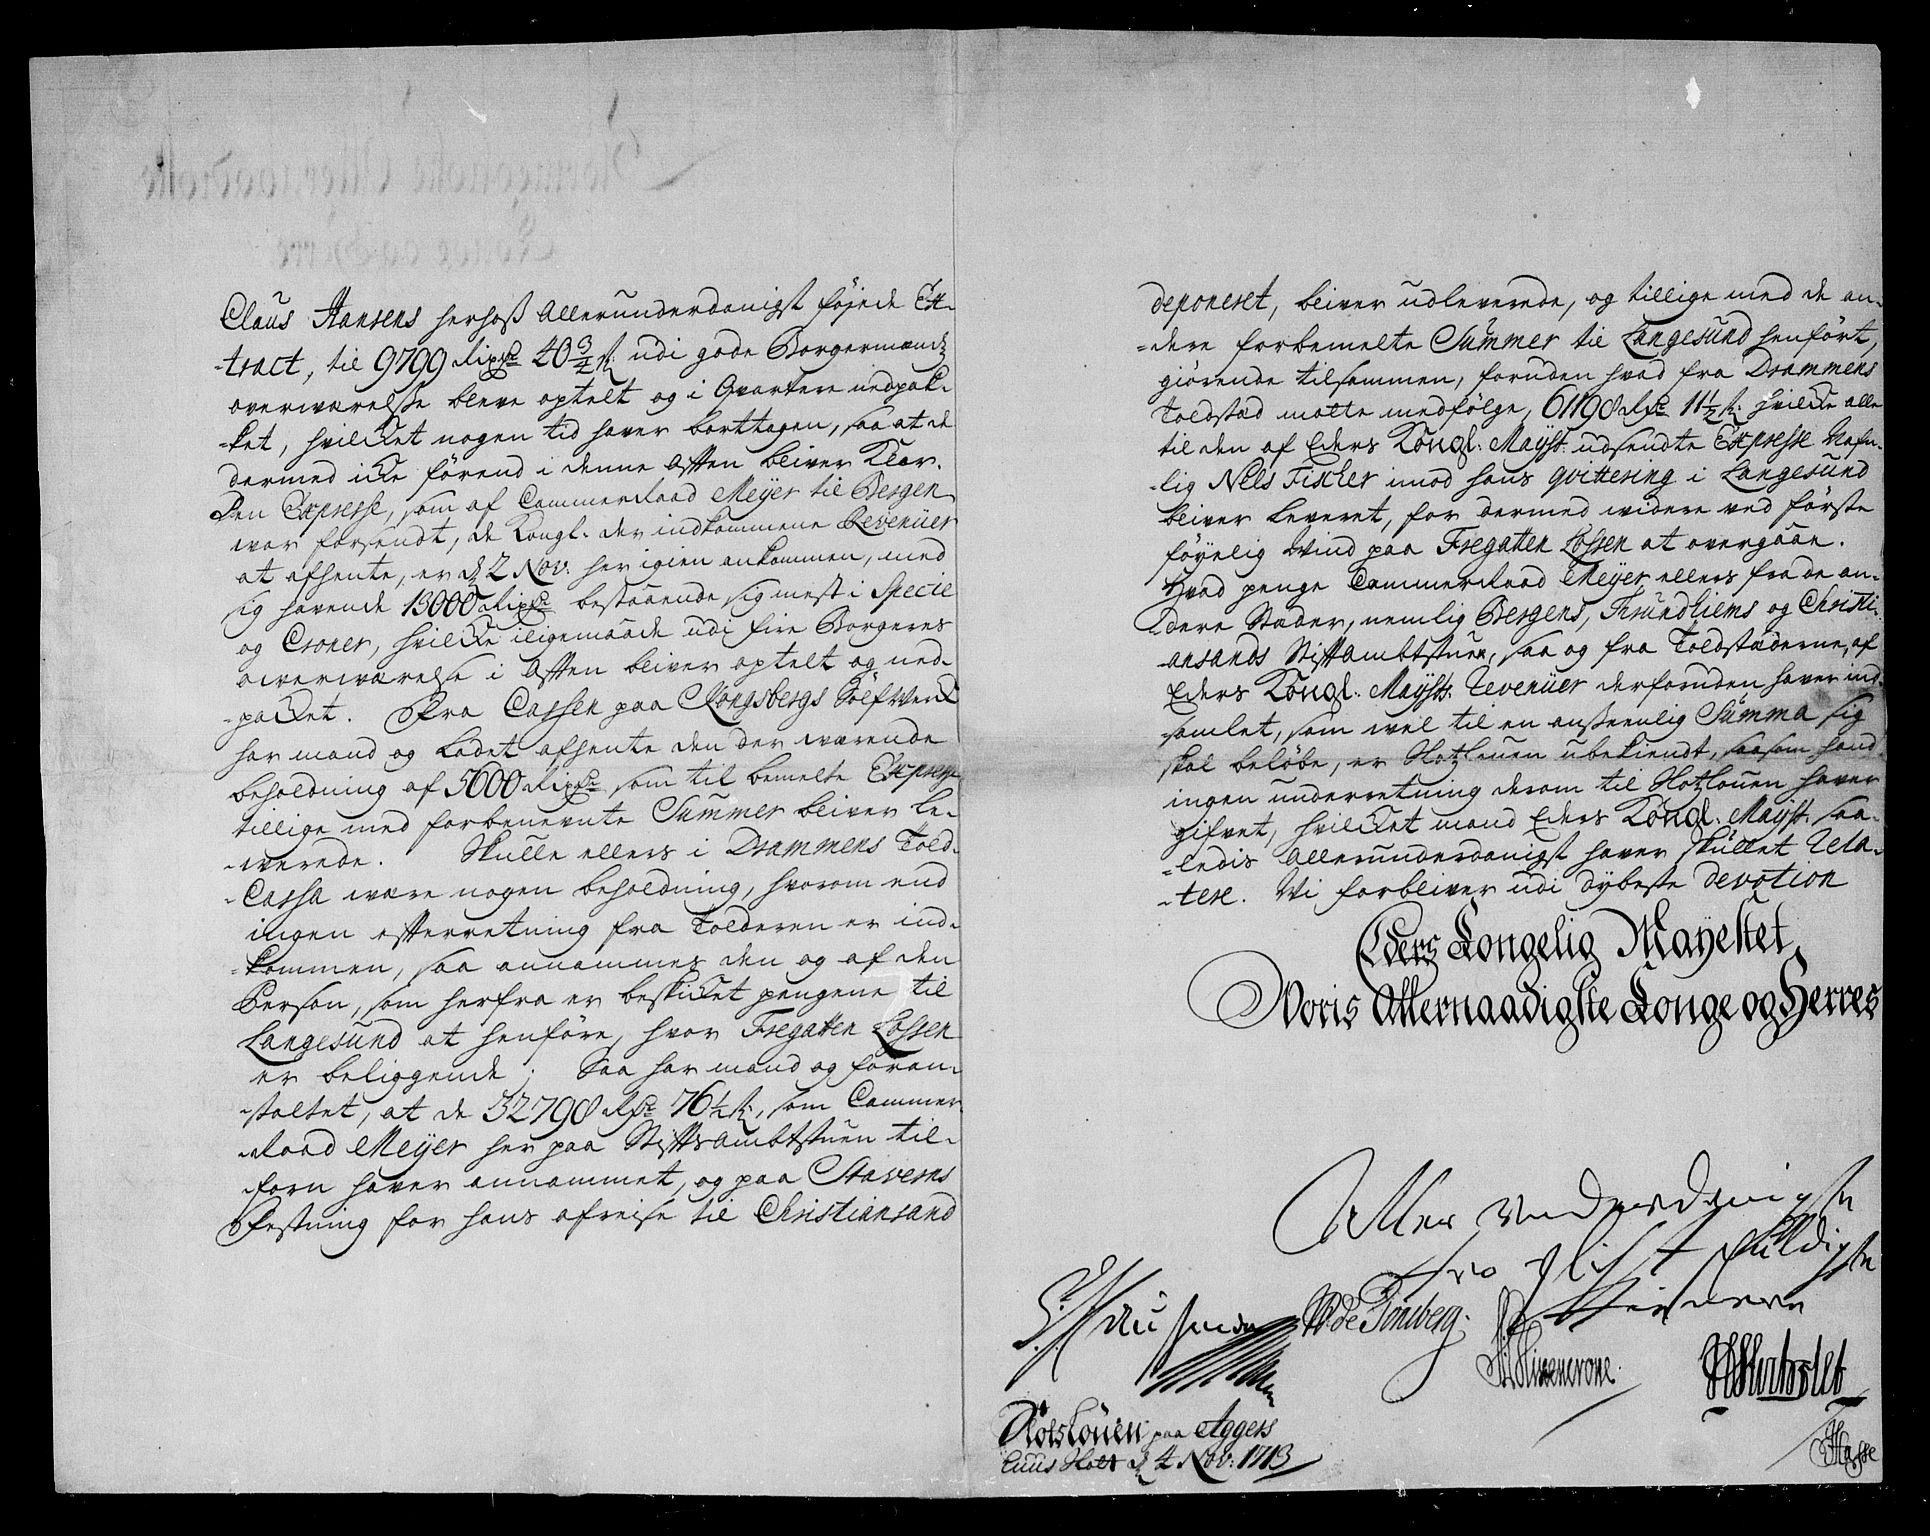 Claus Hansens herhoß Allerunderdanigst föjede Ex-
-tract, til 9799 Rixdr 40 3/4 ß: udi gode Borgermænds
overværelse bleve optelt og i Qvartere nedpak-
-ket, hvilcket nogen tid haver borttagen, saa at de
dermed icke förend i denne Afften bliver klar.
Den Expresse, som af CammerRaad Meÿer til Bergen
war forsendt, de Kongl. der indkommene Revenüer
at afhente, er d 2 Nov: her igien ankommen, med
sig havende 13000 Rixdr bestaaende sig mest i Specie
og Croner, hvilcke iligemaade udi fire Borgeres
owerwærelse i Afften bliver optelt og ned-
-packet. Fra Cassen paa Kongsbergs Sölfwerck
har mand og ladet afhente den der wærende
beholdning af 5600 Rixdr, som til bemelte Expresse
tillige med forbenevnte Summer bliver le-
-werede. Skulle ellers i Drammens Told-
-Cassa wære nogen beholdning, hvorom end
ingen efterretning fra Tolderen er ind-
-kommen, saa annammes den og af den
Person, som herfra er beskicket pengene til
Langesund at henföre, hvor Fregatten Lossen
er beliggende; Saa har mand og foran-
-staltet, at de 32798 Rdr 76 1/2 ß:, som Cammer-
-Raad Meÿer her paa StiftsAmbtstuen til-
-forn haver annammet, og paa Staverns
Festning for hans afreise til Christiansand
deponeret, bliver udleverede, og tillige med de an-
-dere forbemelte Summer til Langesund henfört,
giörende tilsammen, foruden hvad fra Drammens
Toldstæd motte medfölge, 61198 Rdr 11 1/2 ß: hvilcke alle
til den af Eders Köngl: Mayst: udsendte Expresse Nafn-
-lig Niels Fischer imod hans qvittering i Langesund
bliver leveret, for dermed widere ved förste
föyelig Wind paa Fregatten Lossen at overgaae.
Hvad penge CammerRaad Meÿer ellers fra de an-
-dere Stæder, nemlig Bergens, Thrundhiems og Christi-
-ansands StiftAmbtstuer, saa og fra Toldstæderne, af
Eders Köngl: Mayst: Revenüer derforuden haver ind-
-samlet, som wel til en anseenlig Summa sig
skal belöbe, er Slotzlouen ubekiendt, saasom hand
ingen underretning derom til Slotzlouen haver
gifvet, hvilcket mand Eders Köngl: Mayst: saa-
-ledis Allerunderdanigst haver skullet Refe-
-rere. Vi forbliver udi dybeste devotion
Eders Kongelig Mayestet,
Voris Allernaadigste Konge og Herres
Aller underdanigste
troe pligt skuldigste
tienere
W de Tönsberg.
Slotslouen paa Agers
huus Slott d 4 Nov: 1713